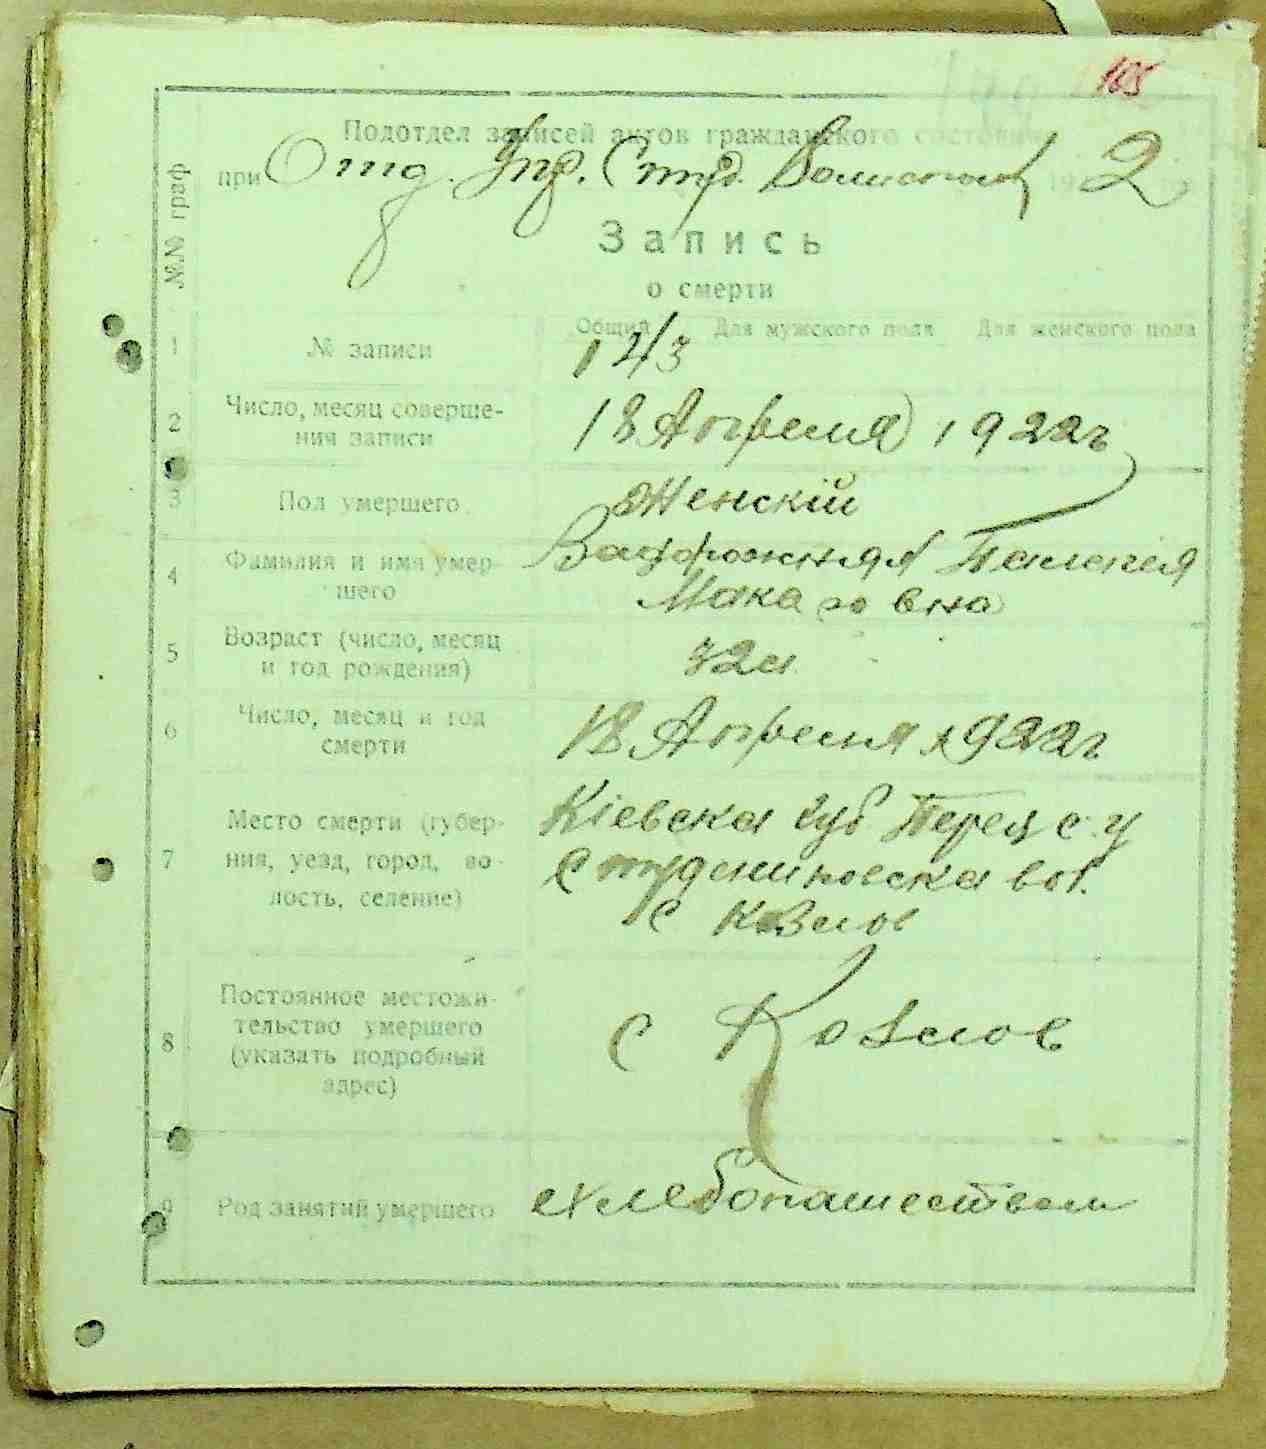 105
Подотдел записей актов гражданского состояния
при Отд. Упр. Студ. Волисполк 192 2
№№ граф
Запись
о смерти
Общий Для мужского пола Для женского пола
1 № записи 143
2 Число, месяц соверше-
ния записи 18 Апреля 1922г
3 Пол умершего Женскій
4 Фамилия и имя умер-
шего Пелагея
Макаровна
5 Возраст (число, месяц
и год рождения) 72л
6 Число, месяц и год
смерти 18 Апреля 1922г
7 Место смерти (губер-
ния, уезд, город, во-
лость, селение)
Кіевска губ Переяс. у
Студениковска вол.
с Козлов
8 Постоянное местожи-
тельство умершего
(указать подробный
адрес)
с Козлов
9 Род занятий умершего хлебопашеством